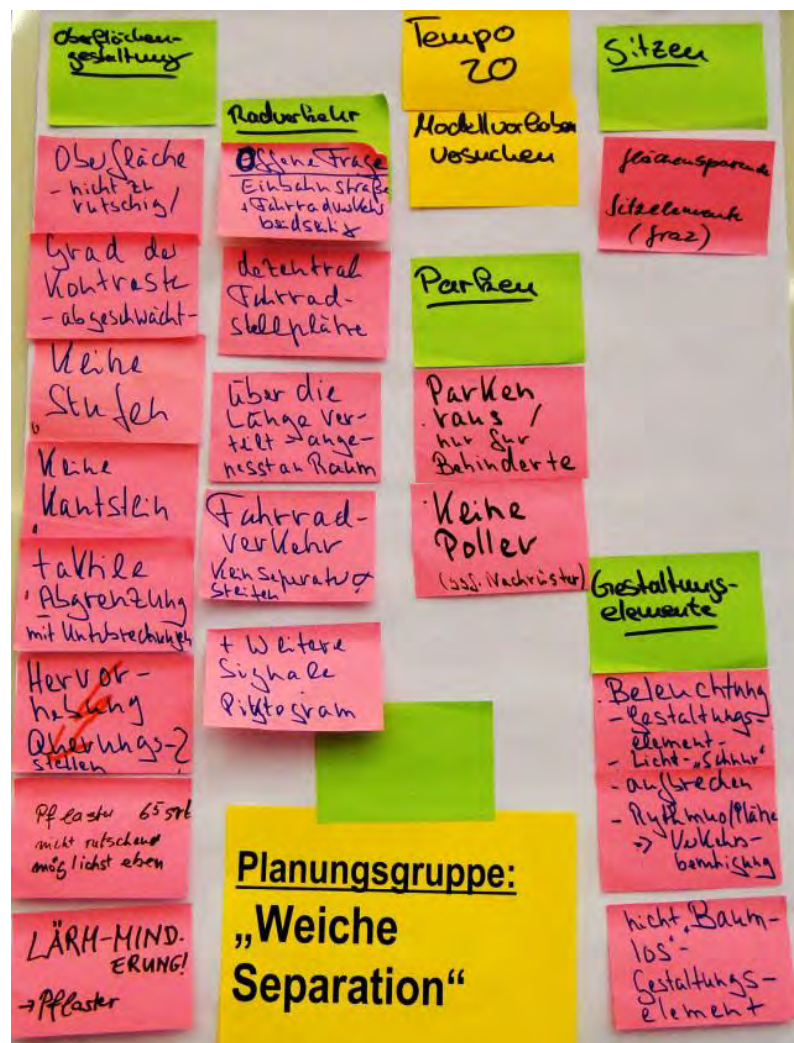 Oberflächen-
gestaltung
Oberfläche
- nicht zu
rutschig!
Grad der
Kontraste
- abgeschwächt -
Keine
Stufen
Keine
Kantstein
taktile
Abgrenzung
mit Unterbrechungen
Hervor-
hebung
Querungs-?
stellen
Pflaster
nicht rutschend
möglichst eben
LÄRM-MIND.
ERUNG!
→ Pflaster
Radverkehr
Offene Frage
Einbahnstraße
+ Fahrradverkehr
beidseitig
dezentral
Fahrrad-
stellplätze
über die
Länge ver-
teilt → ange-
messt an Raum
Fahrrad-
verkehr
kein separater
Streifen
+ Weitere
Signale
Piktogram
Tempo
20
Modellvorhaben
versuchen
Parken
Parken
raus /
nur für
Behinderte
Keine
Poller
(ggf. Nachrüsten)
Sitzen
flächensparende
Sitzelemente
(Graz)
Gestaltungs-
elemente
Beleuchtung
- Gestaltungs-
element -
- Licht-„Schnur“
- aufbrechen
- Rythmus/Plätze
→ Verkehrs-
beruhigung
nicht „Baum-
los“-
Gestaltungs-
element
Planungsgruppe:
„Weiche
Separation“